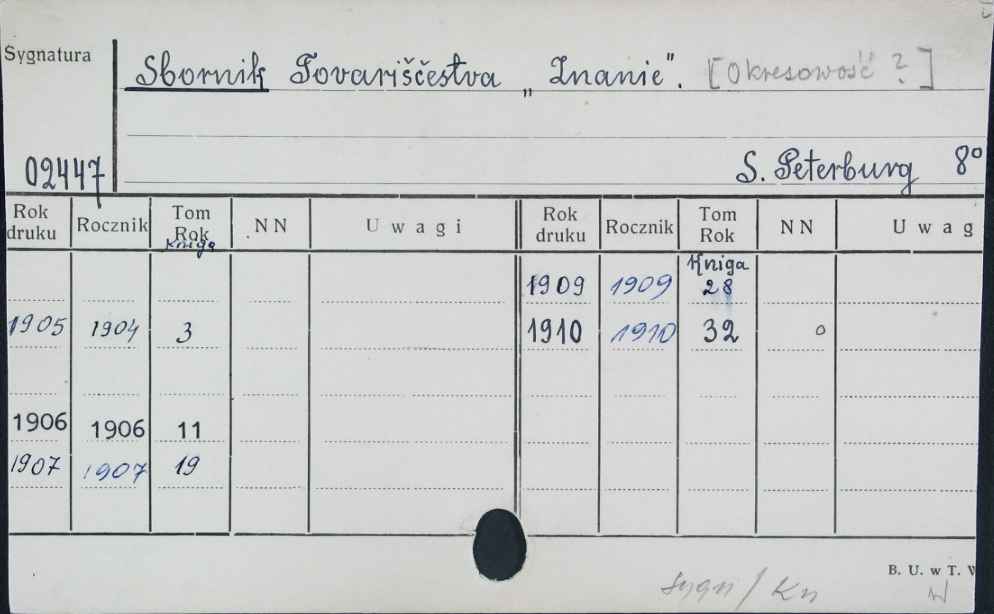 Sygnatura
Sbornik Tovariščestva „Znanie". [Okresowość ?]
02447
S. Peterburg 8°
Rok druku Rocznik Tom Rok Kniga NN Uwagi Rok druku Rocznik Tom Rok NN Uwag
Kniga
1909 1909 28
1905 1904 3 1910 1910 32
1906 1906 11
1907 1907 19
B. U. w T.
Sygn / Kn